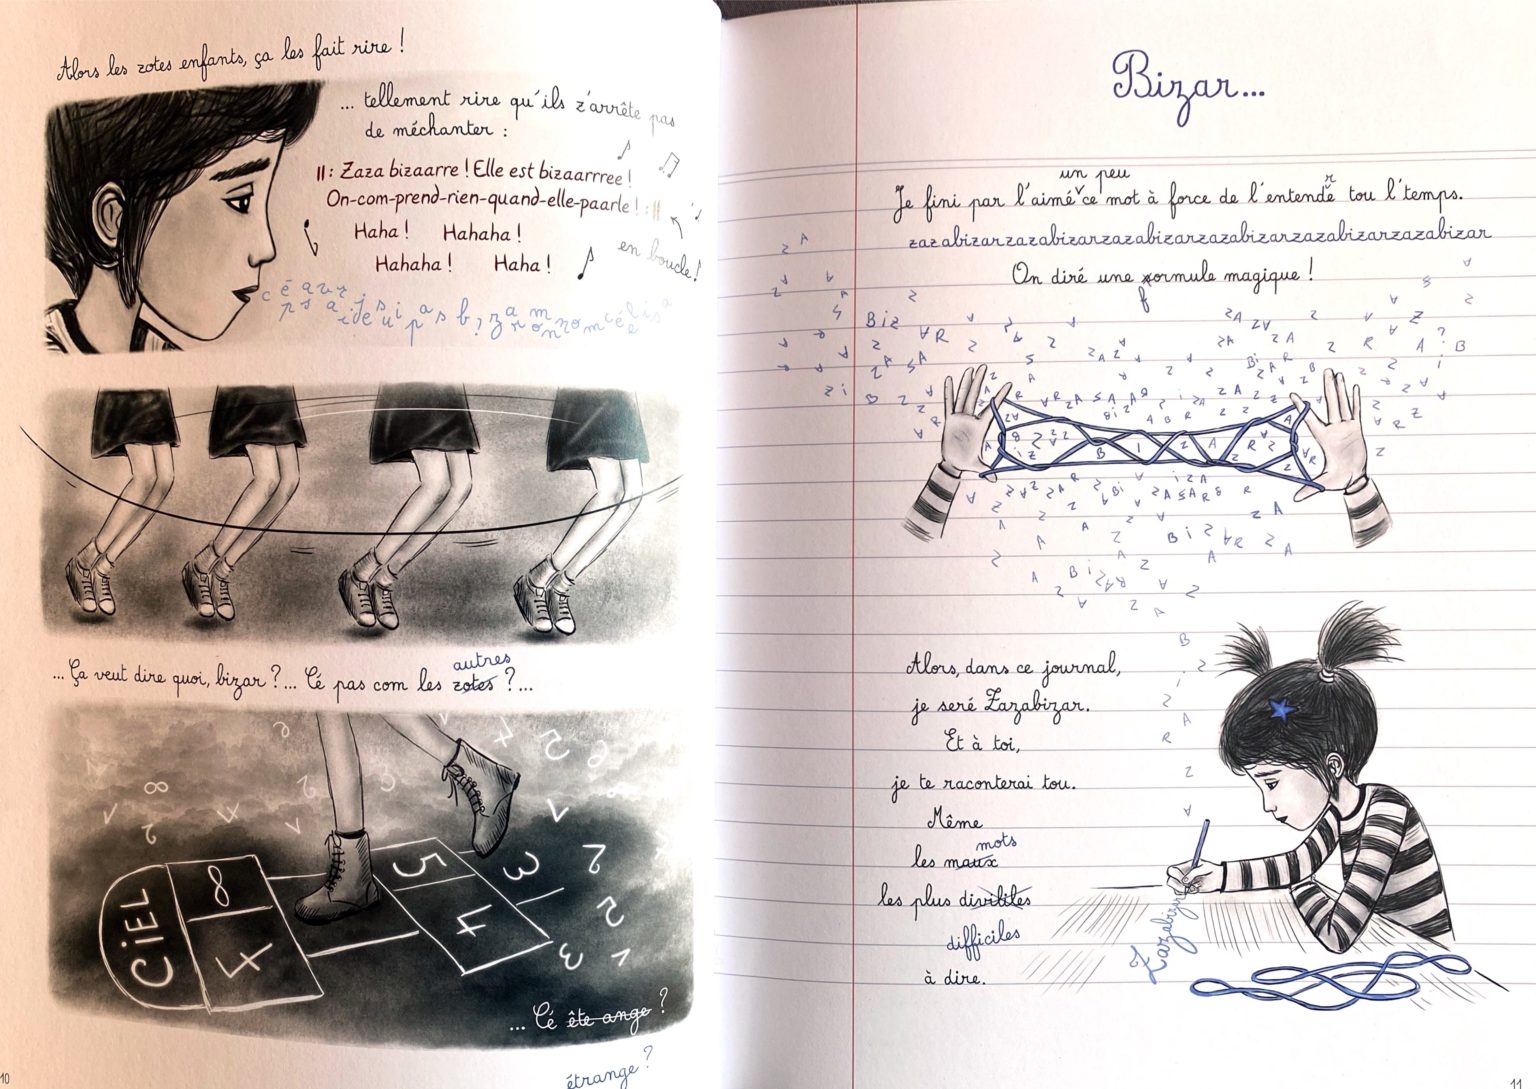 Alors les zotes enfants, ça les fait rire !
... tellement rire qu'ils z'arrête pas
de méchanter :
||: Zaza bizaarre ! Elle est bizaarrree !
On-com-prend-rien-quand-elle-paarle ! :||
Haha ! Hahaha !
en boucle !
Hahaha ! Haha !
... Ça veut dire quoi, bizar ?... Cé pas com les zotes ? ...
autres
CIEL
8
7
5
4
3
... Cé ête ange ?
étrange ?
10
Bizar...
un peu
Je fini par l'aimé ce mot à force de l'entendré tou l'temps.
zazabizarzazabizarzazabizarzazabizarzazabizarzazabizar
On diré une formule magique !
BiZ
Alors, dans ce journal,
je seré Zazabizar.
Et à toi,
je te raconterai tou.
Même
mots
les maux
les plus divililes
difficiles
à dire.
Zazabizar
11